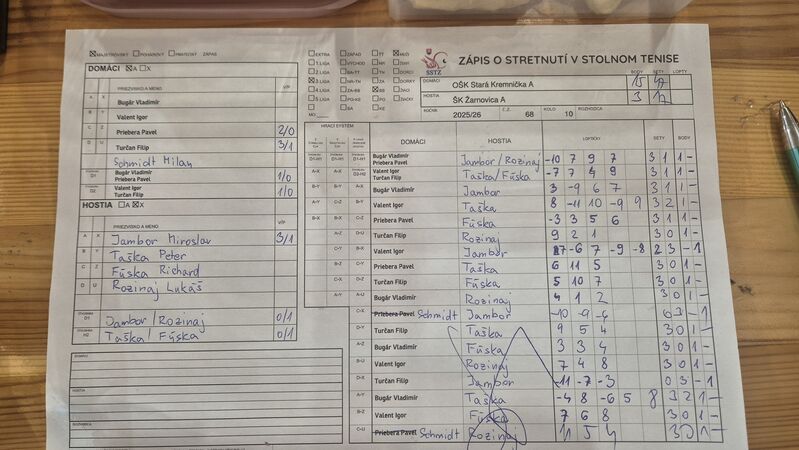 MAJSTROVSKÝ POHÁROVÝ PRIATEĽSKÝ ZÁPAS
DOMÁCI A X
PRIEZVISKO A MENO V/P
A X Bugár Vladimír
B Y Valent Igor
C Z Priebera Pavel 2/0
D U Turčan Filip 3/1
Schmidt Milan
D1 Bugár Vladimír Priebera Pavel 1/0
D2 Valent Igor Turčan Filip 1/0
HOSTIA A X
PRIEZVISKO A MENO V/P
A X Jambor Miroslav 3/1
B Y Taška Peter
C Z Fúska Richard
D U Rozinaj Lukáš
D1 Jambor/Rozinaj 0/1
H2 Taška Fúska 0/1
DOMÁCI
HOSTIA
ROZHODCA
EXTRA ZÁPAD TT MUŽI
1. LIGA VÝCHOD NR ŽENY
2. LIGA BA-TT TN DORCI
3. LIGA NR-TN ZA DORKY
4. LIGA ZA-BB BB ŽIACI
5. LIGA PO-KE PO ŽIAČKY
BA KE
SSTZ
ZÁPIS O STRETNUTÍ V STOLNOM TENISE
DOMÁCI OŠK Stará Kremnička A BODY SETY LOPTY
15 47
HOSTIA ŠK Žarnovica A 3 17
ROČNÍK 2025/26 Č.Z. 68 KOLO 10 ROZHODCA
HRACÍ SYSTÉM
DOMÁCI HOSTIA LOPTIČKY SETY BODY
D1-H1 D1-H1 D1-H1 Bugár Vladimír Priebera Pavel Jambor/Rozinaj -10 7 9 7 3 1 1 -
A-X D2-H2 Valent Igor Turčan Filip Taška/Fúska -7 7 4 9 3 1 1 -
B-Y A-Y Bugár Vladimír Jambor 3 -9 6 7 3 1 1 -
A-Y C-Z B-Y Valent Igor Taška 8 -11 10 -9 9 3 2 1 -
B-X Priebera Pavel Fúska -3 3 5 6 3 1 1 -
A-Z D-U Turčan Filip Rozinaj 9 2 1 3 0 1 -
C-Y B-X Valent Igor Jambor -6 7 -9 -8 2 3 - 1
B-Z C-Y Priebera Pavel Taška 6 11 5 3 0 1 -
C-X D-Z Turčan Filip Fúska 5 10 7 3 0 1 -
A-Y A-U Bugár Vladimír Rozinaj 4 1 2 3 0 1 -
C-X Priebera Pavel Schmidt Jambor -10 -9 0 3 - 1
D-Y Turčan Filip Taška 9 5 4 3 0 1 -
A-Z Bugár Vladimír Fúska 3 3 4 3 0 1 -
B-U Valent Igor Rozinaj 7 4 8 3 0 1 -
D-X Turčan Filip Jambor -11 -7 -3 0 3 - 1
A-Y Bugár Vladimír Taška -4 8 -6 5 8 3 2 1 -
B-Z Valent Igor Fúska 7 6 8 3 0 1 -
C-U Priebera Pavel Schmidt Rozinaj 11 5 4 3 0 1 -